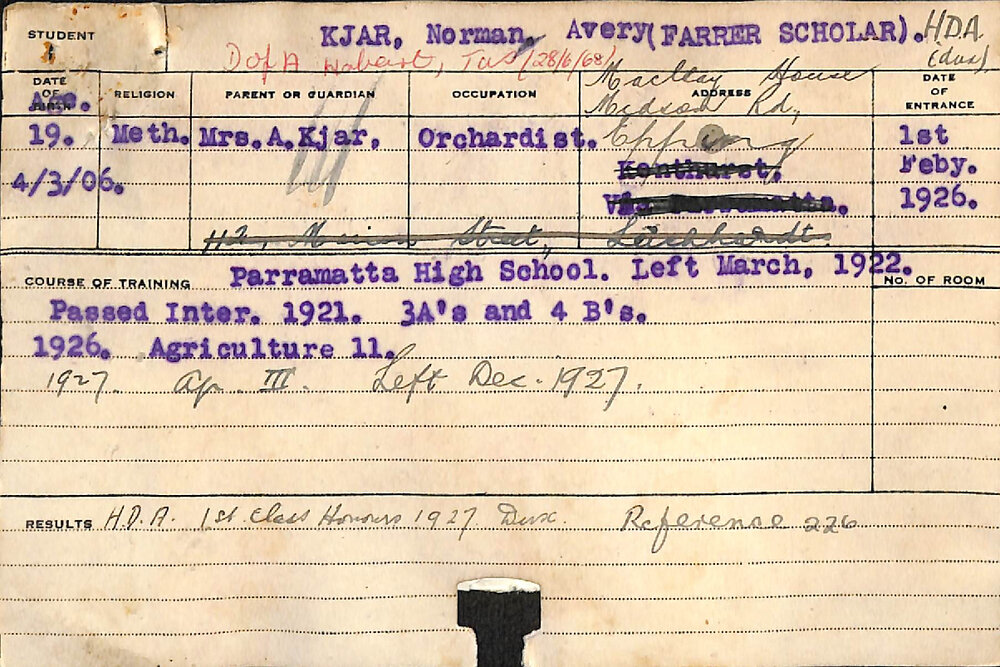 STUDENT
KJAR, Norman, Avery (FARRER SCHOLAR). HDA
(dux)
D of A Hobart, Tas (28/6/68)
DATE OF BIRTH RELIGION PARENT OR GUARDIAN OCCUPATION ADDRESS DATE OF ENTRANCE
Macleay House
Age. Midson Rd,
19. Meth. Mrs. A. Kjar, Orchardist. Epping 1st
Kenthurst, Feby.
4/3/06. Via Parramatta. 1926.
Street, Leichhardt.
COURSE OF TRAINING Parramatta High School. Left March, 1922.
NO. OF ROOM
Passed Inter. 1921. 3A's and 4 B's.
1926. Agriculture 11.
1927. Ag. III. Left Dec. 1927.
RESULTS H.D.A. 1st Class Honours 1927 Dux. Reference 226